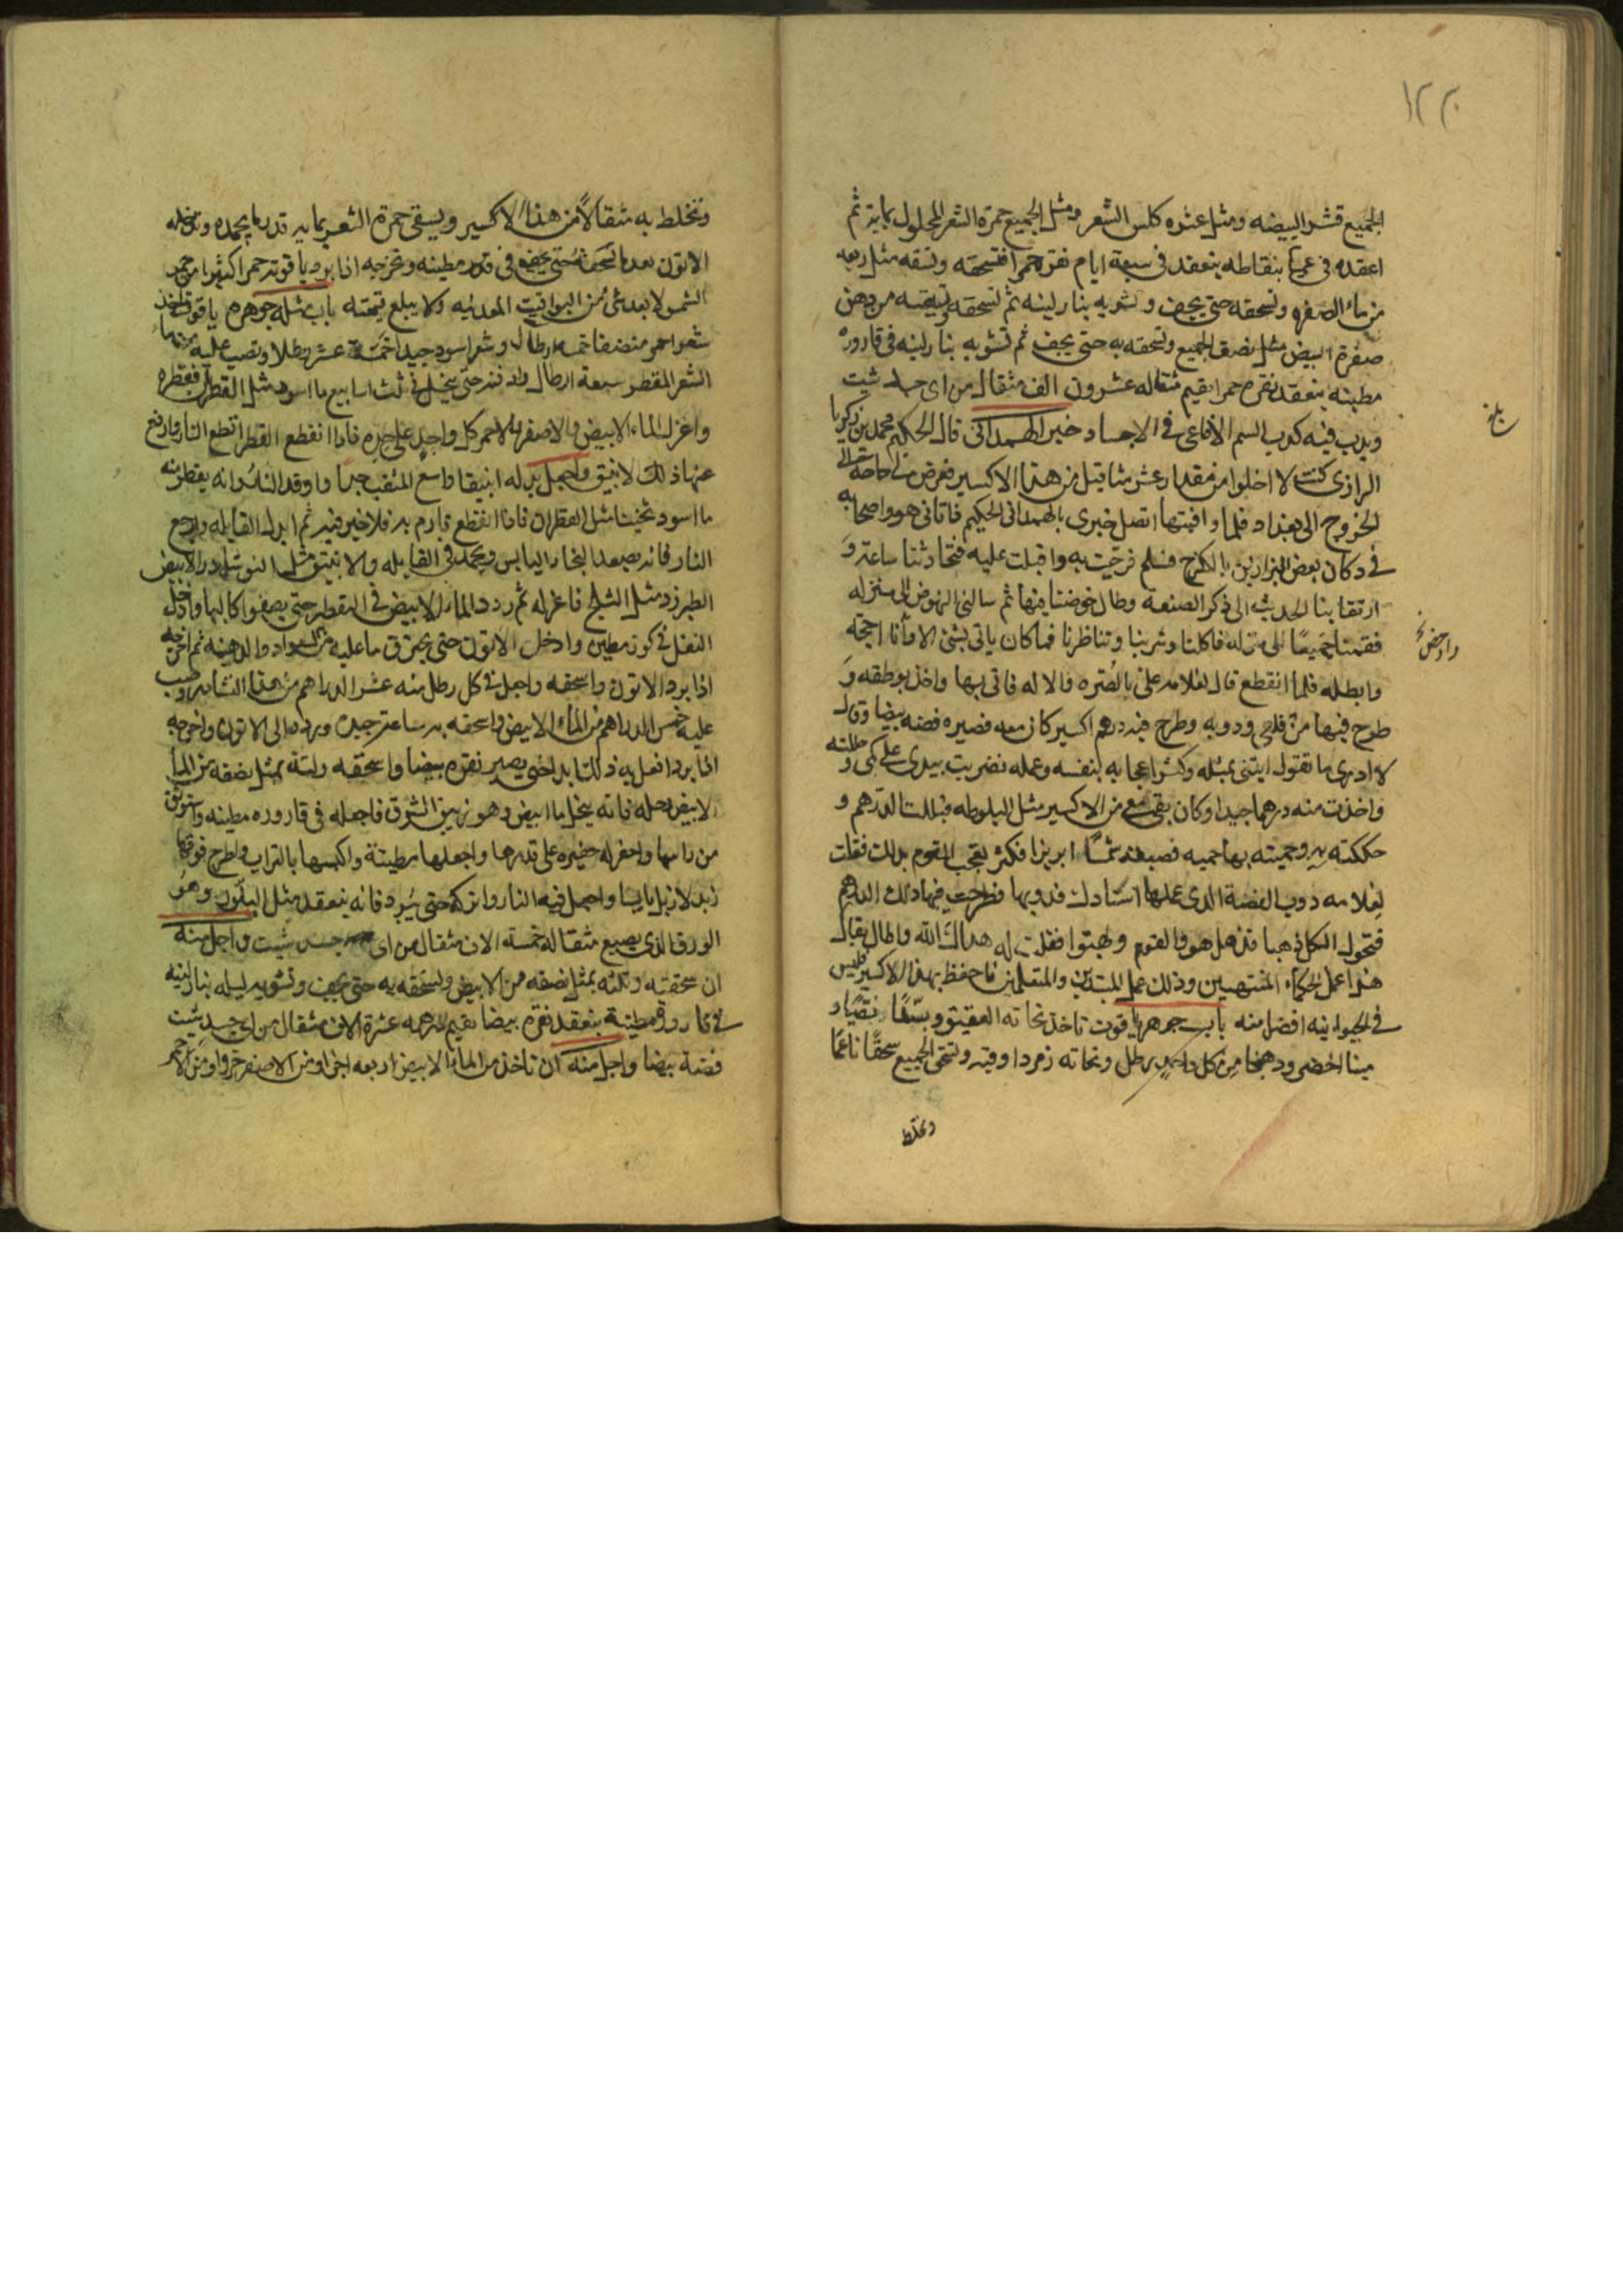 ١٢٢
الجميع قشر البيضه ومثل عشره كلس الشعر ومثل الجميع حمرة الشعر المحلول بمايه ثم
اعقده في عميا بنقاطه ينعقد في سبعة ايام نقره حمرا فتسحقه وتسقه مثل ربعه
من ماء الصفره وتسحقه حتى يجف وتشويه بنار لينه ثم تسحقه وتسقيه من دهن
صفرة البيض مثل نصف الجميع وتسحقه به حتى يجف ثم تشويه بنار لينه في قاروره
مطينه ينعقد نقره حمرا يقيم مثقاله عشرون الف مثقال من اى جسد شيت
ويدب فيه كدب السم الافاعى في الاجساد خبر الهمدانى قال الحكيم محمد بن زكريا
الرازى كنت لا اخلوا من مقدار عشر مثاقيل من هذا الاكسير فعرض لى حاجة الى
الخروج الى بغداد فلما وافيتها اتصل خبرى بالهمدانى الحكيم فاتانى هو واصحابه
في دكان بعض البزازين بالكرخ فسلم فرحبت به واقبلت عليه فتحادثنا ساعة و
ارتقا بنا الحديث الى ذكر الصنعة وطال خوضنا فيها ثم سالنى النهوض الى منزله
فقمنا جميعا الى منزله فاكلنا وشربنا وتناظرنا فما كان ياتى بشئ الا وانا احجه
وابطله فلما انقطع قال لغلامه على بالصره والاله فاتى بها واخذ بوطقه و
طرح فيها من قلعى ودوبه وطرح فيه درهم اكسير كان معه فصيره فضه بيضا وقال
لا ادرى ما تقول ايتنى بمثله وكثر اعجابه بنفسه وعمله فضربت بيدى على كمى وحللته
واخذت منه درهما جيدا وكان بقى معى من الاكسير مثل البلوطه فبللت الدرهم و
حككته به وحميته بها حميه فصبغته شمسا ابريزا فكثر تعجب القوم بذلك فقلت
لغلامه دوب الفضة الذى عملها استادك فدوبها فطرحت فيها ذلك الدرهم
فتحول الكل ذهبا فذهل هو والقوم وبهتوا فقلت له هداك الله واطال بقاك
هذا عمل الحكماء المنتهيين وذلك عمل المبتديين والمتعلمين فاحفظ بهذا الاكسير فليس
في الحيوانيه افضل منه باب جوهر ياقوت تاخذ نحاته العقيق
مينا اخضر ودهنجا من كل واحد رطل ونحاته زمردا وقيه وتسحق الجميع سحقا ناعما
وتخلط
بلغ
وتخلط به مثقالا من هذا الاكسير ويسقى حمرة الشعر بمايه قدر ما يجمده وتدخله
الاتون بعد ما تسحقه حتى يجف في قدر مطينه وتخرجه اذا برد ياقوته حمرا اكثر احمر من
الشمس لا يعد شئ من اليواقيت المعدنيه ولا يبلغ قيمته باب مثله جوهره ياقوت تاخذ
شعر احمر منضفا خمسه ارطال وشعر اسود جيدا خمسة عشر رطلا وتصب عليه من ما
الشعر المقطر سبعة ارطال وادفنه حتى ينحل في ثلث اسابيع ما اسود مثل القطران فقطره
واعزل الماء الابيض والاصفر والاحمر كل واحد على حده فاذا انقطع القطر اقطع النار وارفع
عنها ذلك الانبيق واجعل بدله انبيقا واسع المثقب جيدا واوقد النار فانه يقطر منه
ما اسود ثخينا مثل القطران فاذا انقطع فارم به فلا خير فيه ثم ابدل القابله وارجع
النار فانه يصعد البخار اليابس ويجمد في القابله والانبيق مثل النوشادر الابيض
الطبرزد مثل الثلج فاعزله ثم ردد الماء الابيض في التقطير حتى يصفوا كالبها وادخل
الثفل في كوز مطين وادخل الاتون حتى يحترق ما عليه من السواد والدهنيه ثم اخرجه
اذا برد الاتون واسحقه واجعل في كل رطل منه عشر الدراهم من هذا النشادر وصب
عليه خمس الدراهم من الماء الابيض واسحقه به ساعة جيده ورده الى الاتون واخرجه
اذا برد افعل به ذلك ابدا حتى يصير نقره بيضا واسحقه ولته بمثل نصفه من الما
الابيض وحله فانه ينحل ما ابيض وهو زيبق الشرق فاجعله في قاروره مطينه واستوثق
من راسها واحفر له حفيره على قدرها واجعلها مطينة واكبسها بالتراب واطرح فوقها
زبد لا زبل يابسا واجعل فيه النار واتركه حتى يبرد فانه ينعقد مثل البلور وهو
الورق الذى يصبغ مثقاله خمسة الاف مثقال من اى جسد شيت واجل منه
ان سحقته ولته بمثل نصفه من الابيض وتسحقه به حتى يجف وتشويه ليله بنار لينه
في قارورة مطينة ينعقد نقره بيضا تقيم درهمه عشرة الاف مثقال من اى جسد شيت
فضة بيضا واجل منه ان تاخذ من الماء الابيض اربعه اجزا ومن الاصفر جزوا ومن الاحمر